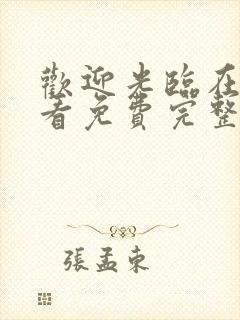 歡迎光臨在
看免費完整
張孟東